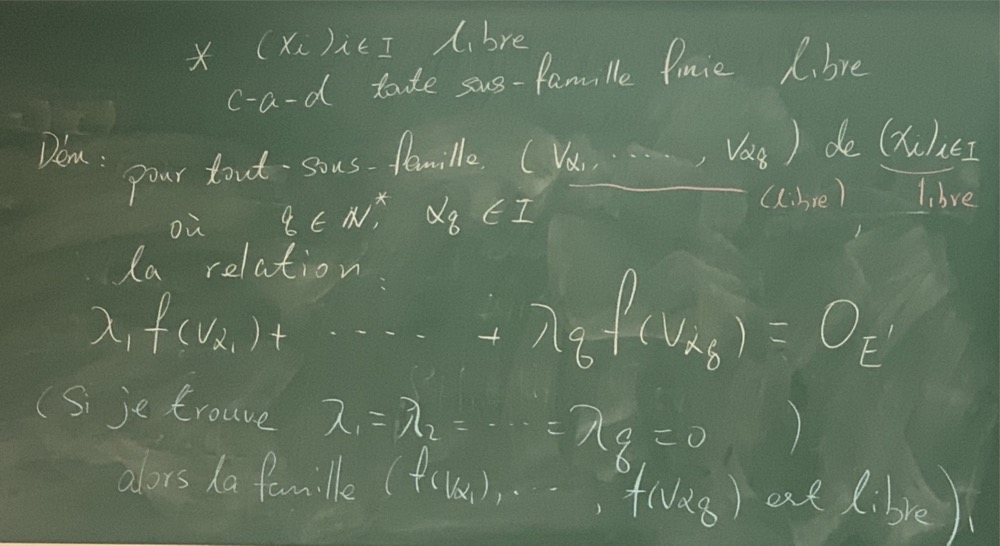 * (xi)i∈I libre
c-a-d toute sous-famille finie libre
Dém: pour tout-sous-famille, (Vα₁, ....., Vαq) de (xi)i∈I
(libre) libre
où q ∈ N*, αq ∈ I
la relation:
λ₁f(Vα₁)+ ..... + λq f(Vαq) = 0E'
(Si je trouve λ₁=λ₂=....=λq=0 )
alors la famille (f(Vα₁),..., f(Vαq) est libre).